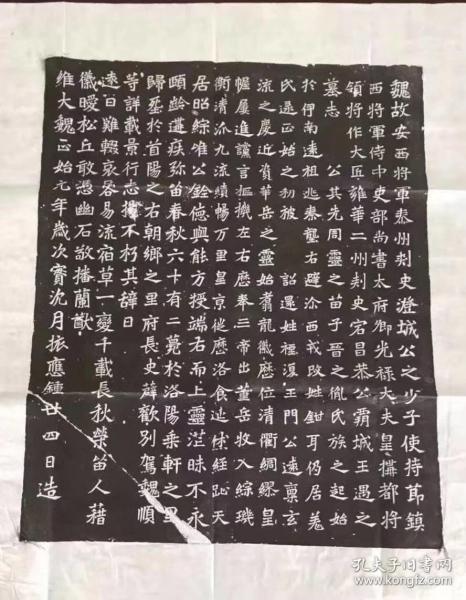 魏故安西將軍秦州刾史澄城公之少子使持節鎮
西將軍侍中吏部尚書太府卿光祿大夫皇構都將
領將作大匠雍華二州刾史宕昌恭公霸城王遇之
墓志　公其先周靈之苗子晋之胤氏族之起始
於伊南遠祖逃秦壟右避沴西戎改姓鉗耳仍居羌
氏逮正始之初被　詔還姓王門公遠稟玄
流之慶近資華岳之靈始騫龍徽歷位清衢綢繆皇
幄屢進讜言樞機左右歷奉三帝出董岳收入綜璣
衡清沴九流績暢万里皇京徙歷洛食延
居昭綜唯公銓德與能方授端右而上靈昧不永
頤齡遘疾弥留春秋六十有二薨於洛陽乘軒之里
歸塟於首陽之右朝鄉之里府長史薛歡別駕魏順
等詳載景行志揚不朽其辞曰
遠日難輟哀容易流宿草一變千載長秋榮留人藉
徽曖松丘敢憑幽石敬播蘭猷
維大魏正始元年歲次實沈月振應鍾廿四日造
孔夫子旧书网
www.kongfz.com